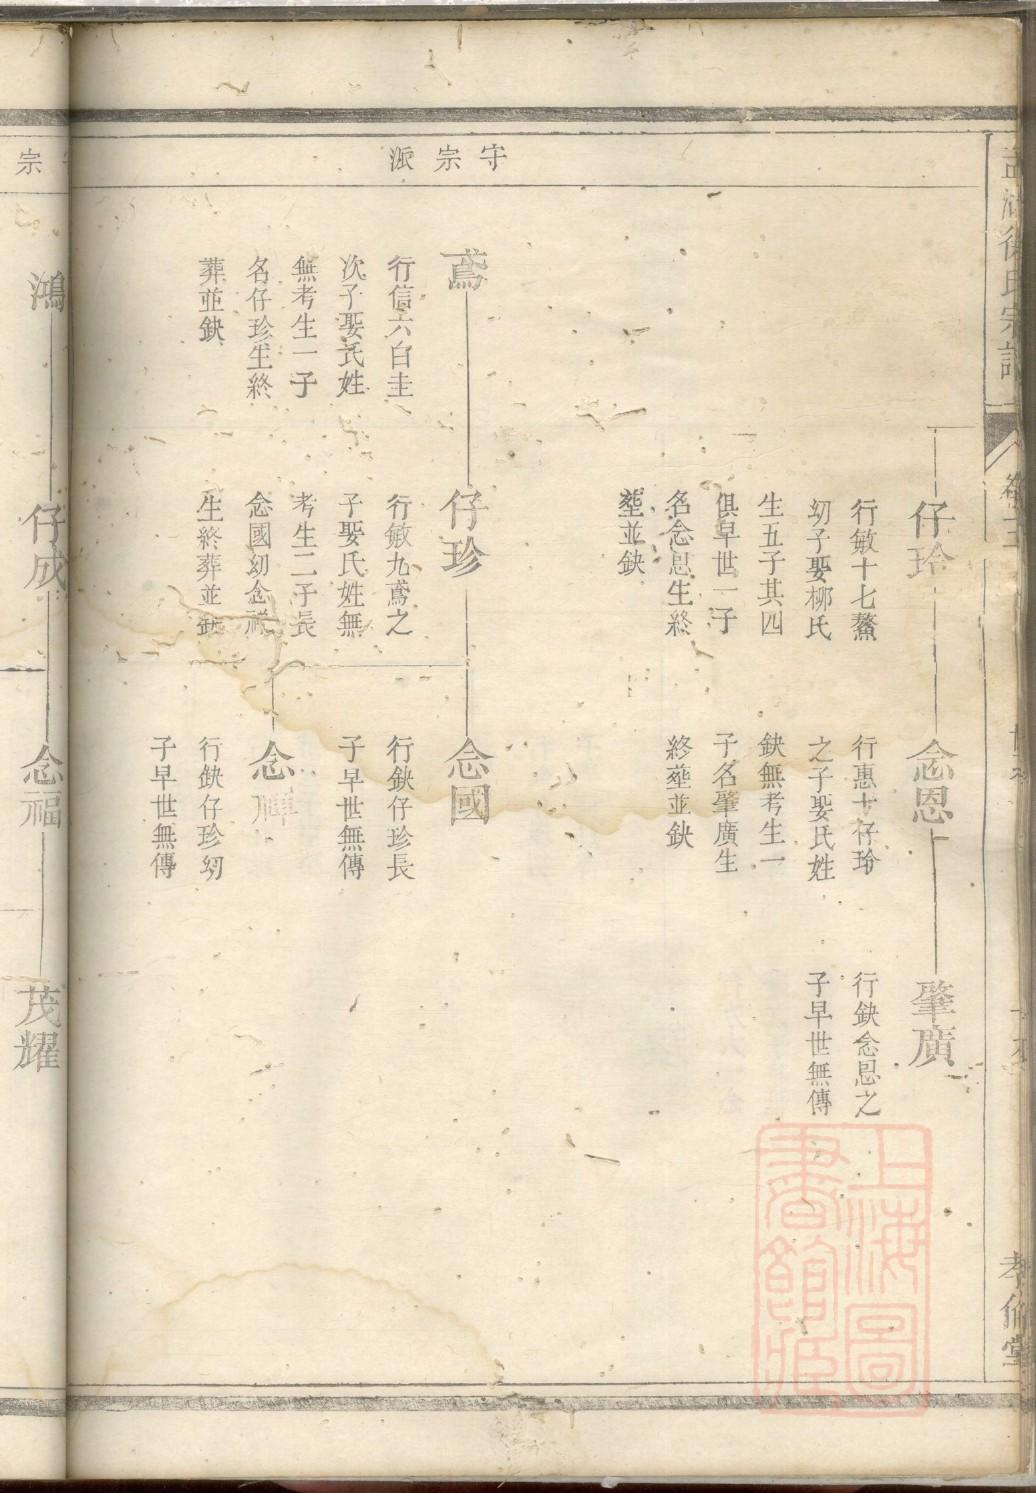 守宗派
仔玲
行敏十七鰲
幼子娶柳氏
生五子其四
俱早世一子
名念恩生終
塟並缺
念恩
行惠七仔玲
之子娶氏姓
缺無考生一
子名肇廣生
終塟並缺
肇廣
行缺念恩之
子早世無傳
鳶
行信六白圭
次子娶氏姓
無考生一子
名仔珍生終
葬並缺
仔珍
行敏九鳶之
子娶氏姓無
考生二子長
念國幼念禪
生終葬並缺
念國
行缺仔珍長
子早世無傳
念禪
行缺仔珍幼
子早世無傳
徐氏宗譜
孝倫堂
上海圖
書館藏
宗
鴻
仔成
念福
茂耀